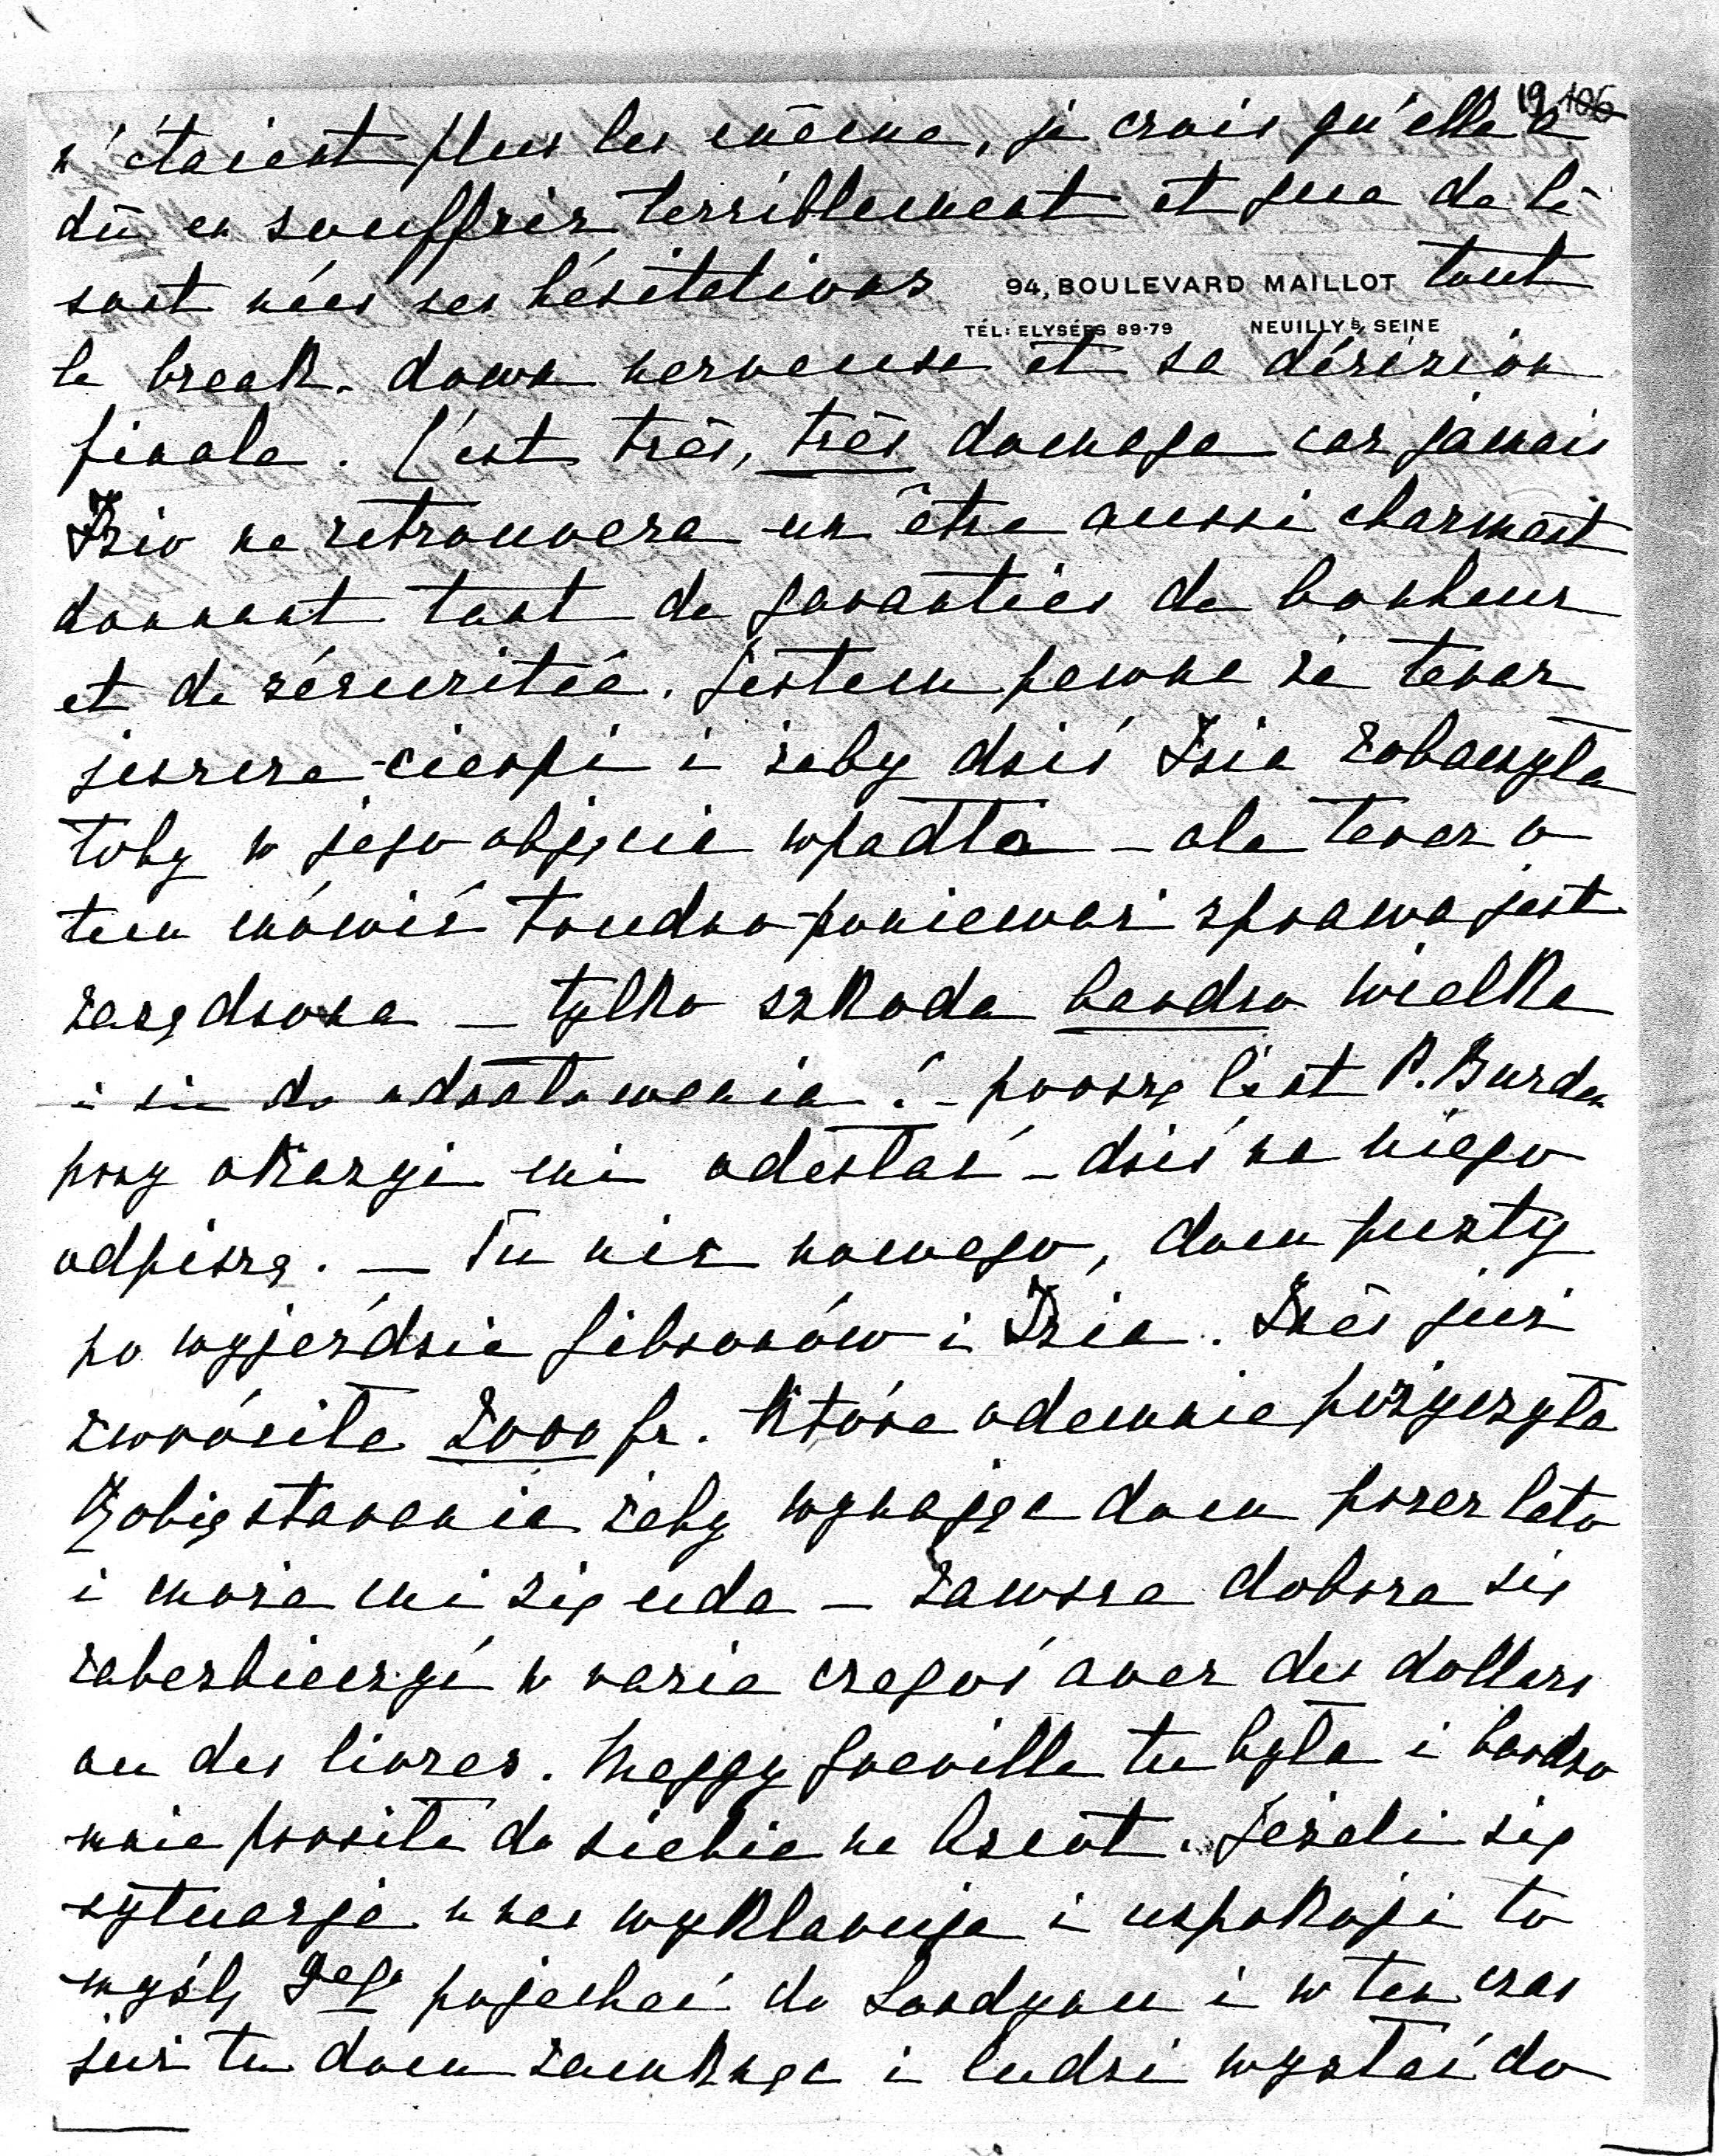 19 106
n'étaient plus les même, je crois qu'elle a
dû en souffrir terriblement et que de là
sont nées ses hésitations tout
94, BOULEVARD MAILLOT
TÉL: ELYSÉES 89-79 NEUILLY S/ SEINE
le break-down nerveuse et sa décision
finale. C'est très, très domage car jamais
Dzio ne retrouvera un être aussi charmant
donnant tant de garanties de bonheur
et de sécuritée. Jestem pewna że teraz
jeszcze cierpi i żeby dziś Dzia zobaczyła
toby w jego objęcie wpadła – ale teraz o
tem mówić trudno ponieważ sprawa jest
zasądzona – tylko szkoda bardzo wielka
i nie do odratowania! – proszę list P. Burden
przy okazyi mi odesłać – dziś na niego
odpiszę. – Tu nic nowego, dom pusty
po wyjeździe Gibsonów i Dzia. Inès już
zwróciła 2000 fr. które odemnie pożyczyła
Robię starania żeby wynająć dom przez lato
i może mi się uda – zawsze dobrze się
zabezbieczyć w razie czegoś avec des dollars
ou des livres. Meggy Greville tu była i bardzo
mnie prosiła do siebie na Ascot. Jeżeli się
sytuacja u nas wyklaruje i uspokoji to
myślę 9go pojechać do Londynu i w ten czas
już tu dom zamknąć i ludzi wysłać do